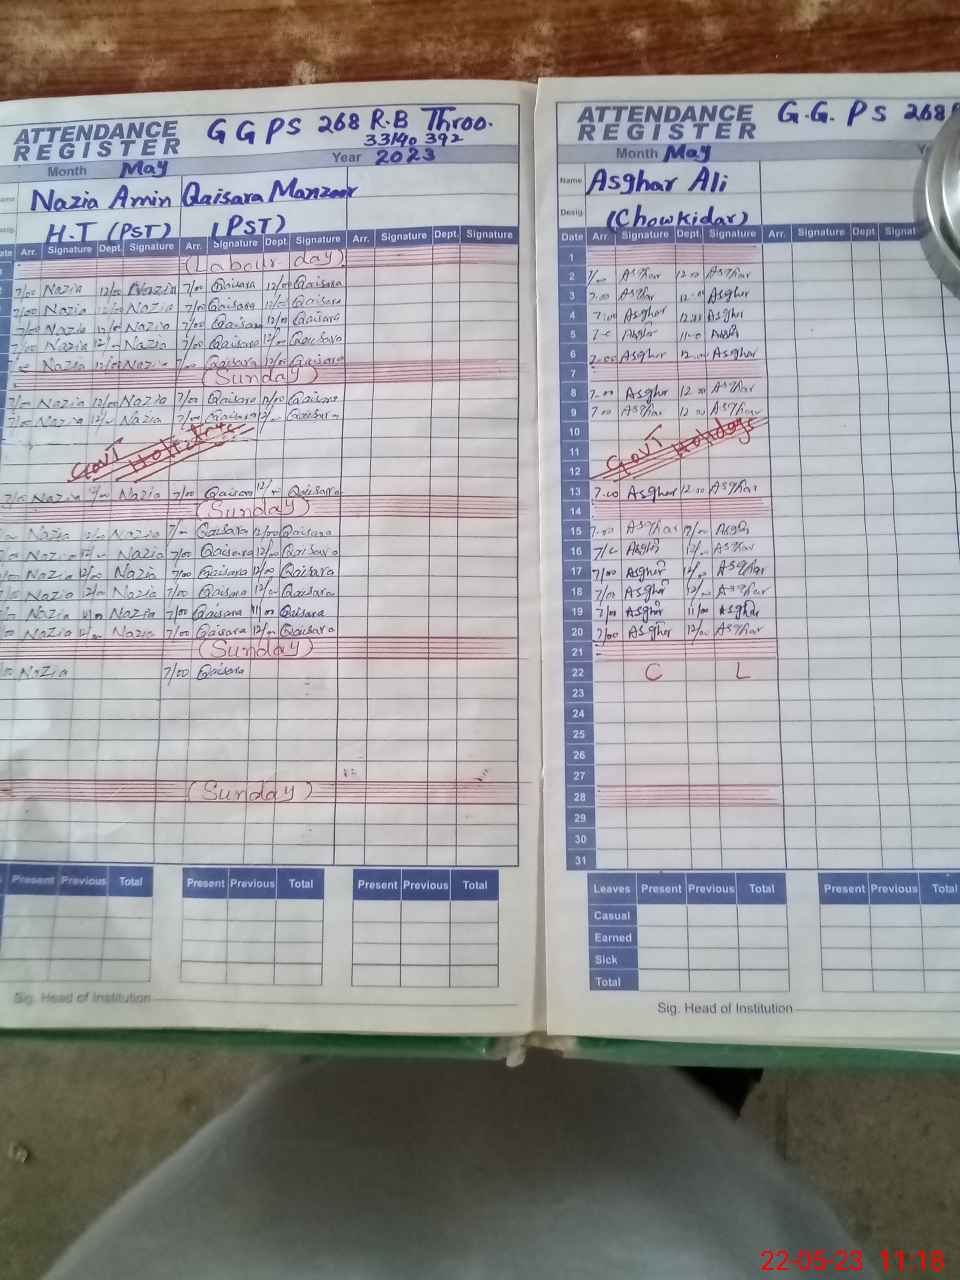 ATTENDANCE REGISTER G G P S 268 R.B Throo.
33140 392
Month May Year 2023
Nazia Amin Qaisara Manzoor
H.T (PST) (PST)
Arr. Signature Dept. Signature Arr. Signature Dept. Signature Arr. Signature Dept. Signature
(Labour day)
7/00 Nazia 12/00 Nazia 7/00 Qaisara 12/00 Qaisara
7/00 Nazia 12/00 Nazia 7/00 Qaisara 12/00 Qaisara
7/00 Nazia 12/00 Nazia 7/00 Qaisara 12/00 Qaisara
7/00 Nazia 12/00 Nazia 7/00 Qaisara 12/00 Qaisara
Nazia 12/00 Nazia 7/00 Qaisara 12/00 Qaisara
(Sunday)
7/00 Nazia 12/00 Nazia 7/00 Qaisara 12/00 Qaisara
7/00 Nazia 12/00 Nazia 7/00 Qaisara 12/00 Qaisara
Govt Holidays
7/00 Nazia Nazia 7/00 Qaisara 12/00 Qaisara
(Sunday)
Nazia 12/00 Nazia 7/00 Qaisara 12/00 Qaisara
Nazia 12/00 Nazia 7/00 Qaisara 12/00 Qaisara
Nazia 12/00 Nazia 7/00 Qaisara 12/00 Qaisara
Nazia 12/00 Nazia 7/00 Qaisara 12/00 Qaisara
Nazia 11/00 Nazia 7/00 Qaisara 11/00 Qaisara
Nazia 12/00 Nazia 7/00 Qaisara 12/00 Qaisara
(Sunday)
Nazia 7/00 Qaisara
(Sunday)
Present Previous Total Present Previous Total Present Previous Total
Sig. Head of Institution
ATTENDANCE REGISTER G.G.P S 268
Month May
Name Asghar Ali
Desig. (Chowkidar)
Date Arr. Signature Dept. Signature Arr. Signature Dept.
1
2 7/00 Asghar 12.00 Asghar
3 7.00 Asghar 12.00 Asghar
4 7.00 Asghar 12.00 Asghar
5 Asghar 11.00 Asghar
6 7.00 Asghar 12.00 Asghar
7
8 7.00 Asghar 12.00 Asghar
9 7.00 Asghar 12.00 Asghar
10
11 Govt Holidays
12
13 7.00 Asghar 12.00 Asghar
14
15 7.00 Asghar 12/00 Asghar
16 Asghar 12/00 Asghar
17 7/00 Asghar 12/00 Asghar
18 7/00 Asghar 12/00 Asghar
19 7/00 Asghar 11/00 Asghar
20 7/00 Asghar 12/00 Asghar
21
22 C L
23
24
25
26
27
28
29
30
31
Leaves Present Previous Total Present Previous Total
Casual
Earned
Sick
Total
Sig. Head of Institution
22-05-23 11:18